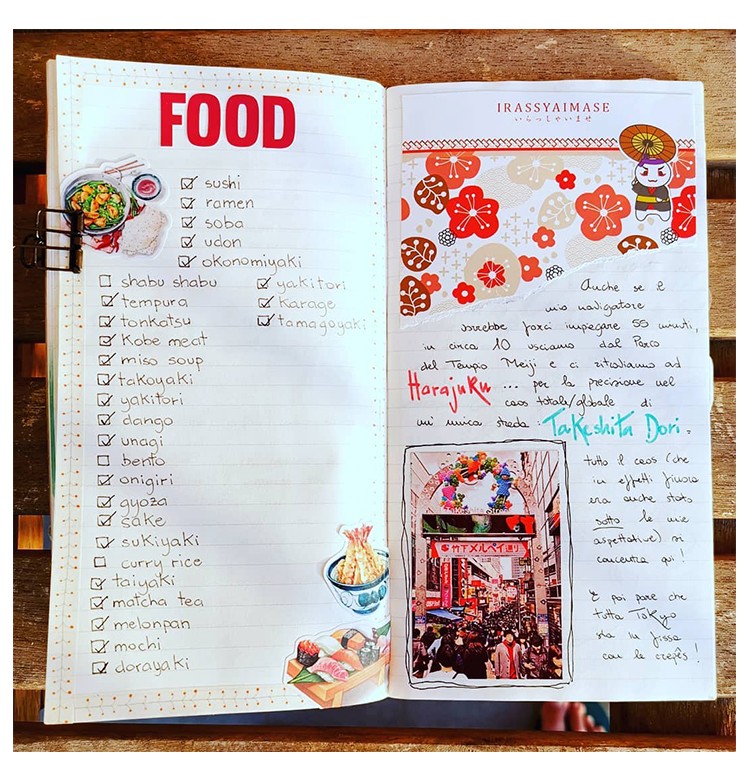 FOOD
sushi
ramen
soba
udon
okonomiyaki
shabu shabu
tempura
tonkatsu
Kobe meat
miso soup
takoyaki
yakitori
dango
unagi
bento
onigiri
gyoza
sake
sukiyaki
curry rice
taiyaki
matcha tea
melonpan
mochi
dorayaki
yakitori
karage
tamagoyaki
IRASSYAIMASE
いらっしゃいませ
Anche se il
mio navigatore
vorrebbe farci impiegare 55 minuti,
in circa 10 usciamo dal Parco
del Tempio Meiji e ci ritroviamo ad
Harajuku ... per la precisione nel
caos totale/globale di
un'unica strada: Takeshita Dori.
tutto il caos (che
in effetti finora
era anche stato
sotto le mie
aspettative) si
concentra qui!
E poi pare che
tutta Tokyo
sia in fissa
con le crepês!
竹下メルペイ通り